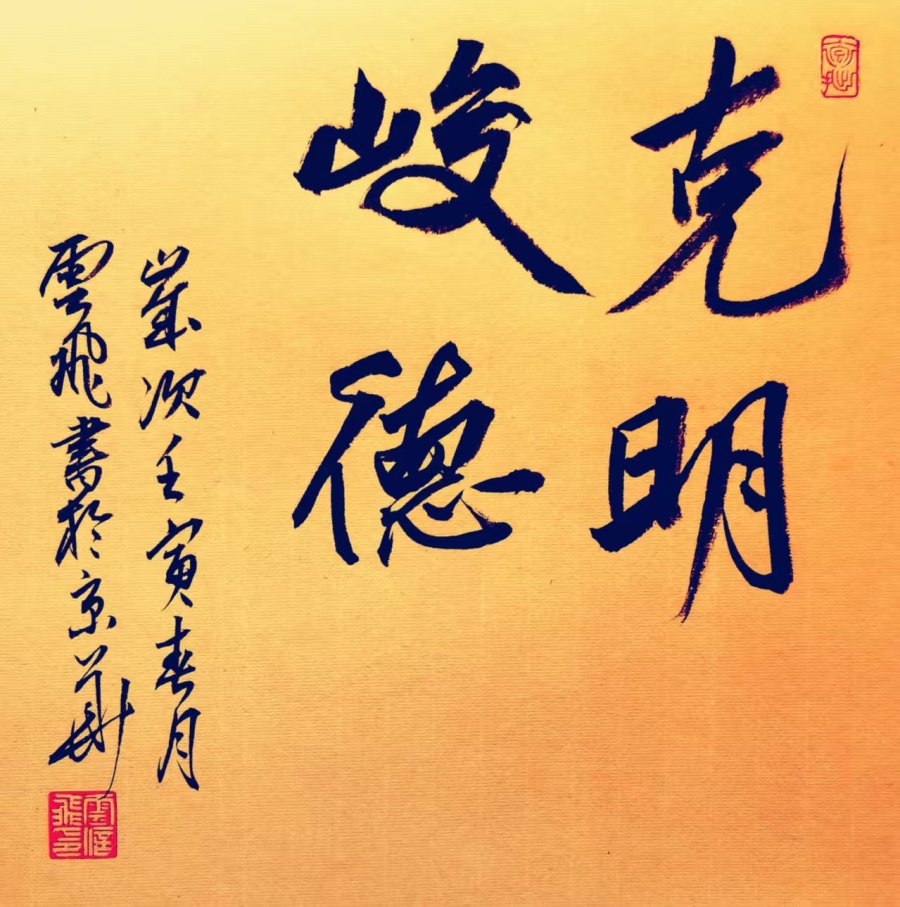 克明
峻德
歲次壬寅春月
雲飛書於京華